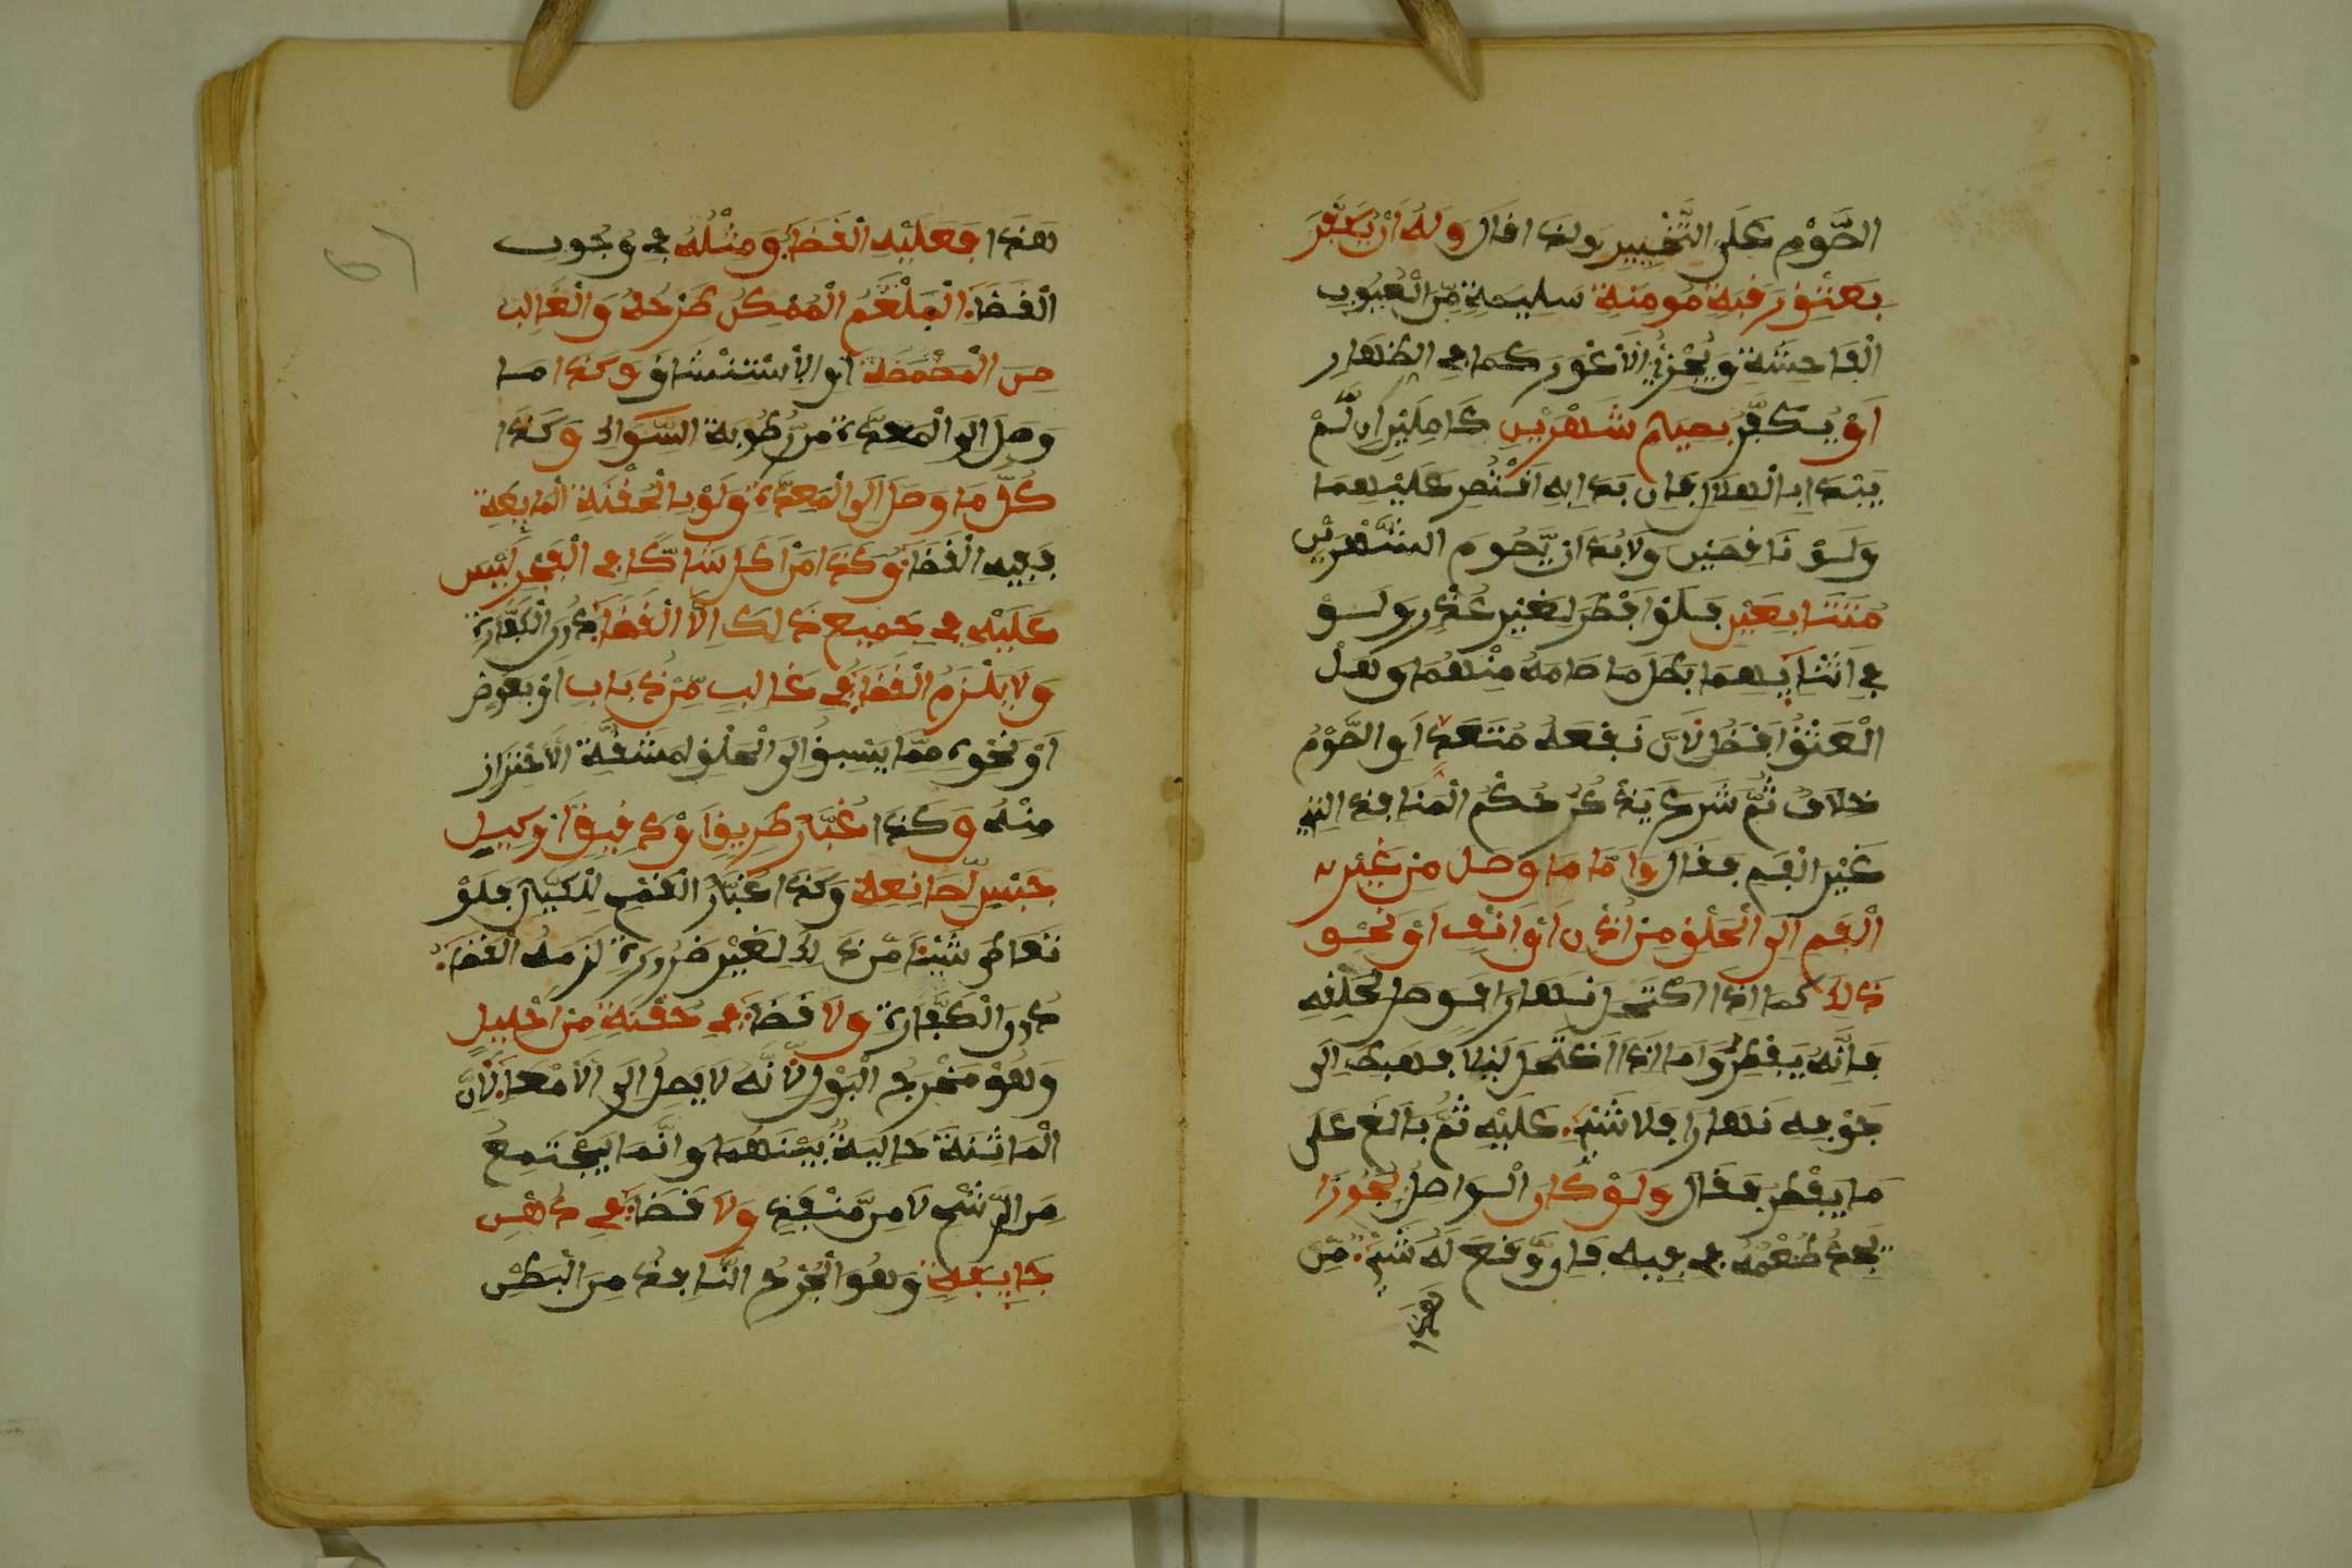 الصَّوْمِ عَلَى التَّخْيِيرِ ولذا قال وَلَهُ اَنْ يُكَفِّرَ
بِعَتْقِ رَقَبَةٍ مُومِنَةٍ سَلِيمَةٍ مِّنَ الْعُيُوبِ
الْفَاحِشَةِ وَيُجْزِئُ الْاَعْوَرُ كما في الظهار
اَوْ يُكَفِّرُ بصيام شَهْرَيْنِ كَامِلَيْنِ اِن لَّمْ
يَبْتَدِا بِالْهِلَالِ فَاِن بَدَا بِهِ اقْتُصِرَ عَلَيْهِمَا
وَلَوْ نَاقِصَيْنِ وَلَا بُدَّ اَن يَّصُومَ الشَّهْرَيْنِ
مُتَتَابِعَيْنِ فَلَوْ اَفْطَرَ لِغَيْرِ عُذْرٍ وَلَوْ
فِي اَثْنَايِهِمَا بَطَلَ مَا صَامَهُ مِنْهُمَا وَهَلْ
الْعَتْقُ اَفْضَلُ لِاَنَّ نَفْعَهُ مُتَعَدٍّ اَوِ الصَّوْمُ
خلافٌ ثُمَّ شَرَعَ يَذْكُرُ حُكْمَ الْمَنَافِذِ التي
غَيْرَ الْفَمِ فَقَالَ وَاَمَّا مَا وَصَلَ مِنْ غَيْرِ
الْفَمِ اِلَى الْحَلْقِ مِنْ اُذُنٍ اَوْ اَنْفٍ اَوْ نَحْوِ
ذَلِكَ كما اذا اكْتَحَلَ نَهَارًا فَوصل لحَلقِهِ
فَاِنَّهُ يَفْطِرُ وَامَا اذَا اكْتَحَلَ لَيْلًا فهبط الى
جَوْفِهِ نَهَارًا فلا شَيْءَ عَلَيْهِ ثُمَّ بَالَغَ عَلَى
مَا يَفْطِرُ فَقَالَ وَلَوْ كَانَ الْوَاصِلُ بَخُورًا
يَجِدُ طُعْمَهُ فِي فِيهِ فَاِن وَّقَعَ لَهُ شَيْءٌ مِّنْ
هَذَا
هَذَا فَعَلَيْهِ الْقَضَاءُ وَمِثْلُهُ فِي وُجُوبِ
الْقَضَاءِ الْبَلْغَمُ الْمُمْكِنُ طَرْحُهُ وَالْغَالِبُ
مِنَ الْمَضْمَضَةِ اَوِ الِاسْتِنْشَاقِ وَكَذَا مَا
وَصَلَ اِلَى الْمَعِدَةِ مِن رُّطُوبَةِ السِّوَاكِ وَكَذَا
كُلُّ مَا وَصَلَ اِلَى الْمَعِدَةِ وَلَوْ بِالْحُقْنَةِ الْمَايِعَةِ
فَفِيهِ الْقَضَاءُ وَكَذَا مَنْ اَكَلَ شَاكًّا فِي الْفَجْرِ لَيْسَ
عَلَيْهِ فِي جَمِيعِ ذَلِكَ اِلَّا الْقَضَاءُ دُونَ الْكَفَّارَةِ
وَلَا يَلْزَمُ الْقَضَاءُ فِي غَالِبٍ مِّنْ ذُبَابٍ اَوْ بَعُوضٍ
اَوْ نَحْوِهِ مِمَّا يَسْبِقُ اِلَى الْحَلْقِ لِمَشَقَّةِ الِاحْتِرَازِ
مِنْهُ وَكَذَا غُبَارُ طَرِيقٍ اَوْ دَقِيقٍ اَوْ كَيْلِ
جِبْسٍ لِّصَانِعِهِ وَكَذَا غُبَارُ الْقَمْحِ لِلْكَيَّالِ فَلَوْ
تعاطى شَيْئًا مِّن ذَلِكَ لِغَيْرِ ضَرُورَةٍ لَزِمَهُ الْقَضَاءُ
دُونَ الْكَفَّارَةِ وَلَا قَضَاءَ فِي حُقْنَةٍ مِنْ اِحْلِيلٍ
وَهُوَ مَخْرَجُ الْبَوْلِ لِاَنَّهُ لَا يَصِلُ اِلَى الْاَمْعَاءِ لِاَنَّ
الْمَاثِنَةَ حَايِلَةٌ بَيْنَهُمَا وَاِنَّمَا يَجْتَمِعُ
مِنَ الرَّشْحِ لَا مِن مَّنْفَذٍ وَلَا قَضَاءَ فِي دُهْنِ
جَايِفَةٍ وَهُوَ الْجُرْحُ النَّافِذُ مِنَ الْبَطْنِ